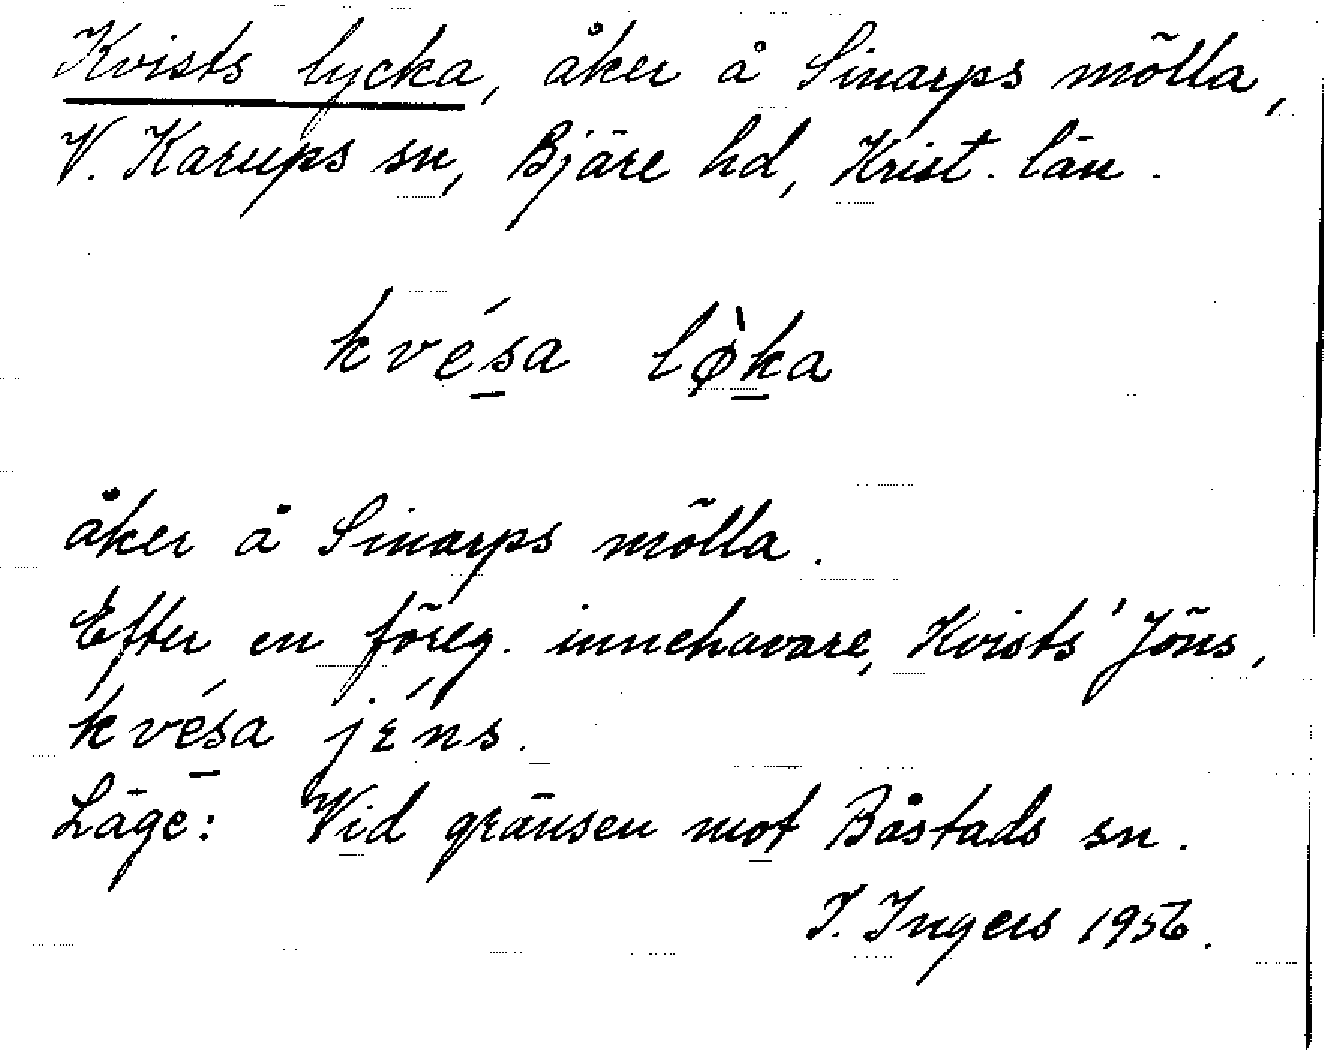 Kvists lycka, åker å Sinarps mölla,
V. Karups sn, Bjäre hd, Krist. län.
kvésa lø̀ka
åker å Sinarps mölla.
Efter en föreg. innehavare, Kvists' Jöns,
kvésa jéns.
Läge: Vid gränsen mot Båstads sn.
I. Ingers 1956.